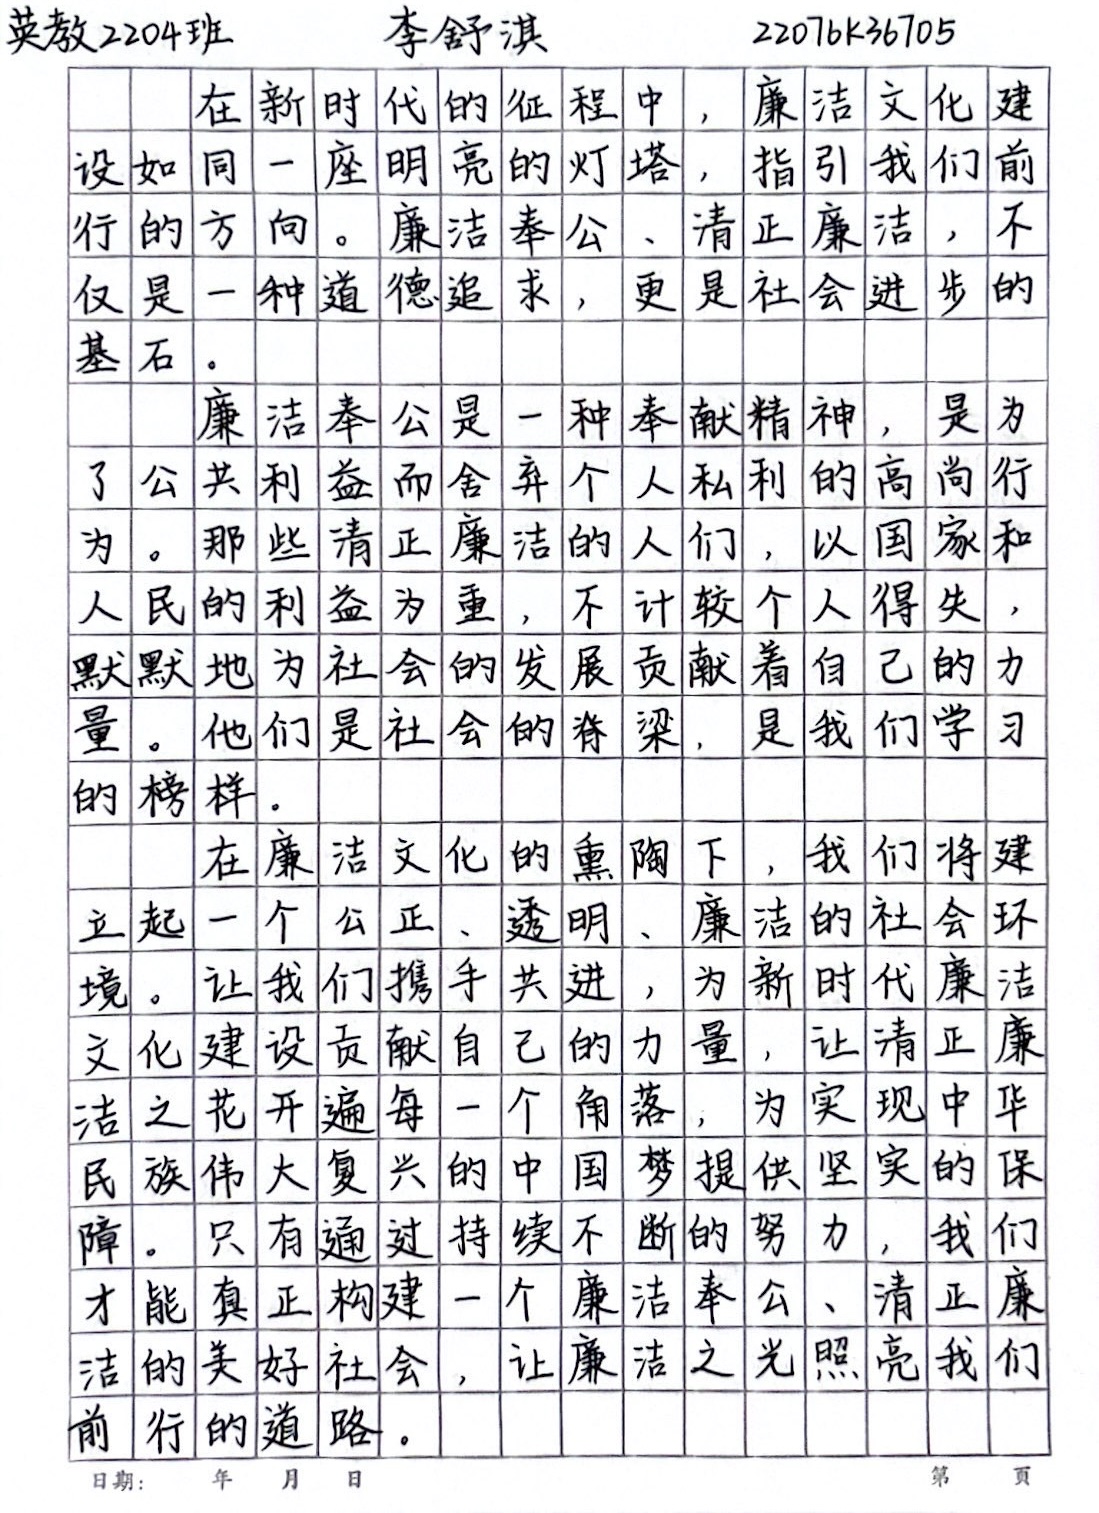 英教2204班 李舒淇 22076K36705
在新时代的征程中，廉洁文化建
设如同一座明亮的灯塔，指引我们前
行的方向。廉洁奉公、清正廉洁，不
仅是一种道德追求，更是社会进步的
基石。
廉洁奉公是一种奉献精神，是为
了公共利益而舍弃个人私利的高尚行
为。那些清正廉洁的人们，以国家和
人民的利益为重，不计较个人得失，
默默地为社会的发展贡献着自己的力
量。他们是社会的脊梁，是我们学习
的榜样。
在廉洁文化的熏陶下，我们将建
立起一个公正、透明、廉洁的社会环
境。让我们携手共进，为新时代廉洁
文化建设贡献自己的力量，让清正廉
洁之花开遍每一个角落，为实现中华
民族伟大复兴的中国梦提供坚实的保
障。只有通过持续不断的努力，我们
才能真正构建一个廉洁奉公、清正廉
洁的美好社会，让廉洁之光照亮我们
前行的道路。
日期： 年 月 日 第 頁